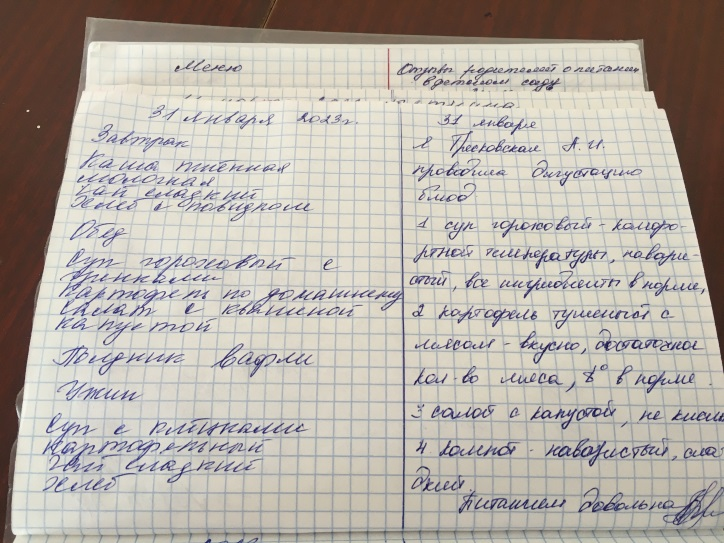 Меню
Отзывы родителей о питании
в детском саду
31 января 2023г.
Завтрак
Каша пшенная
молочная
Чай сладкий
Хлеб с повидлом
Обед
Суп гороховый с
гренками
Картофель по домашнему
Салат с квашеной
капустой
Полдник вафли
Ужин
Суп с клёцками
картофельный
Чай сладкий
Хлеб
31 января
Я Пресковская А.И.
проводила дигустацию
блюд
1 суп гороховый - комфо-
ртной температуры, наваре-
стый, все ингридиенты в норме,
2 картофель тушеный с
мясом - вкусно, достаточное
кол-во мяса, t° в норме.
3 салат с капустой, не кислый
4 компот - наваристый, сла-
дкий
Питанием довольна